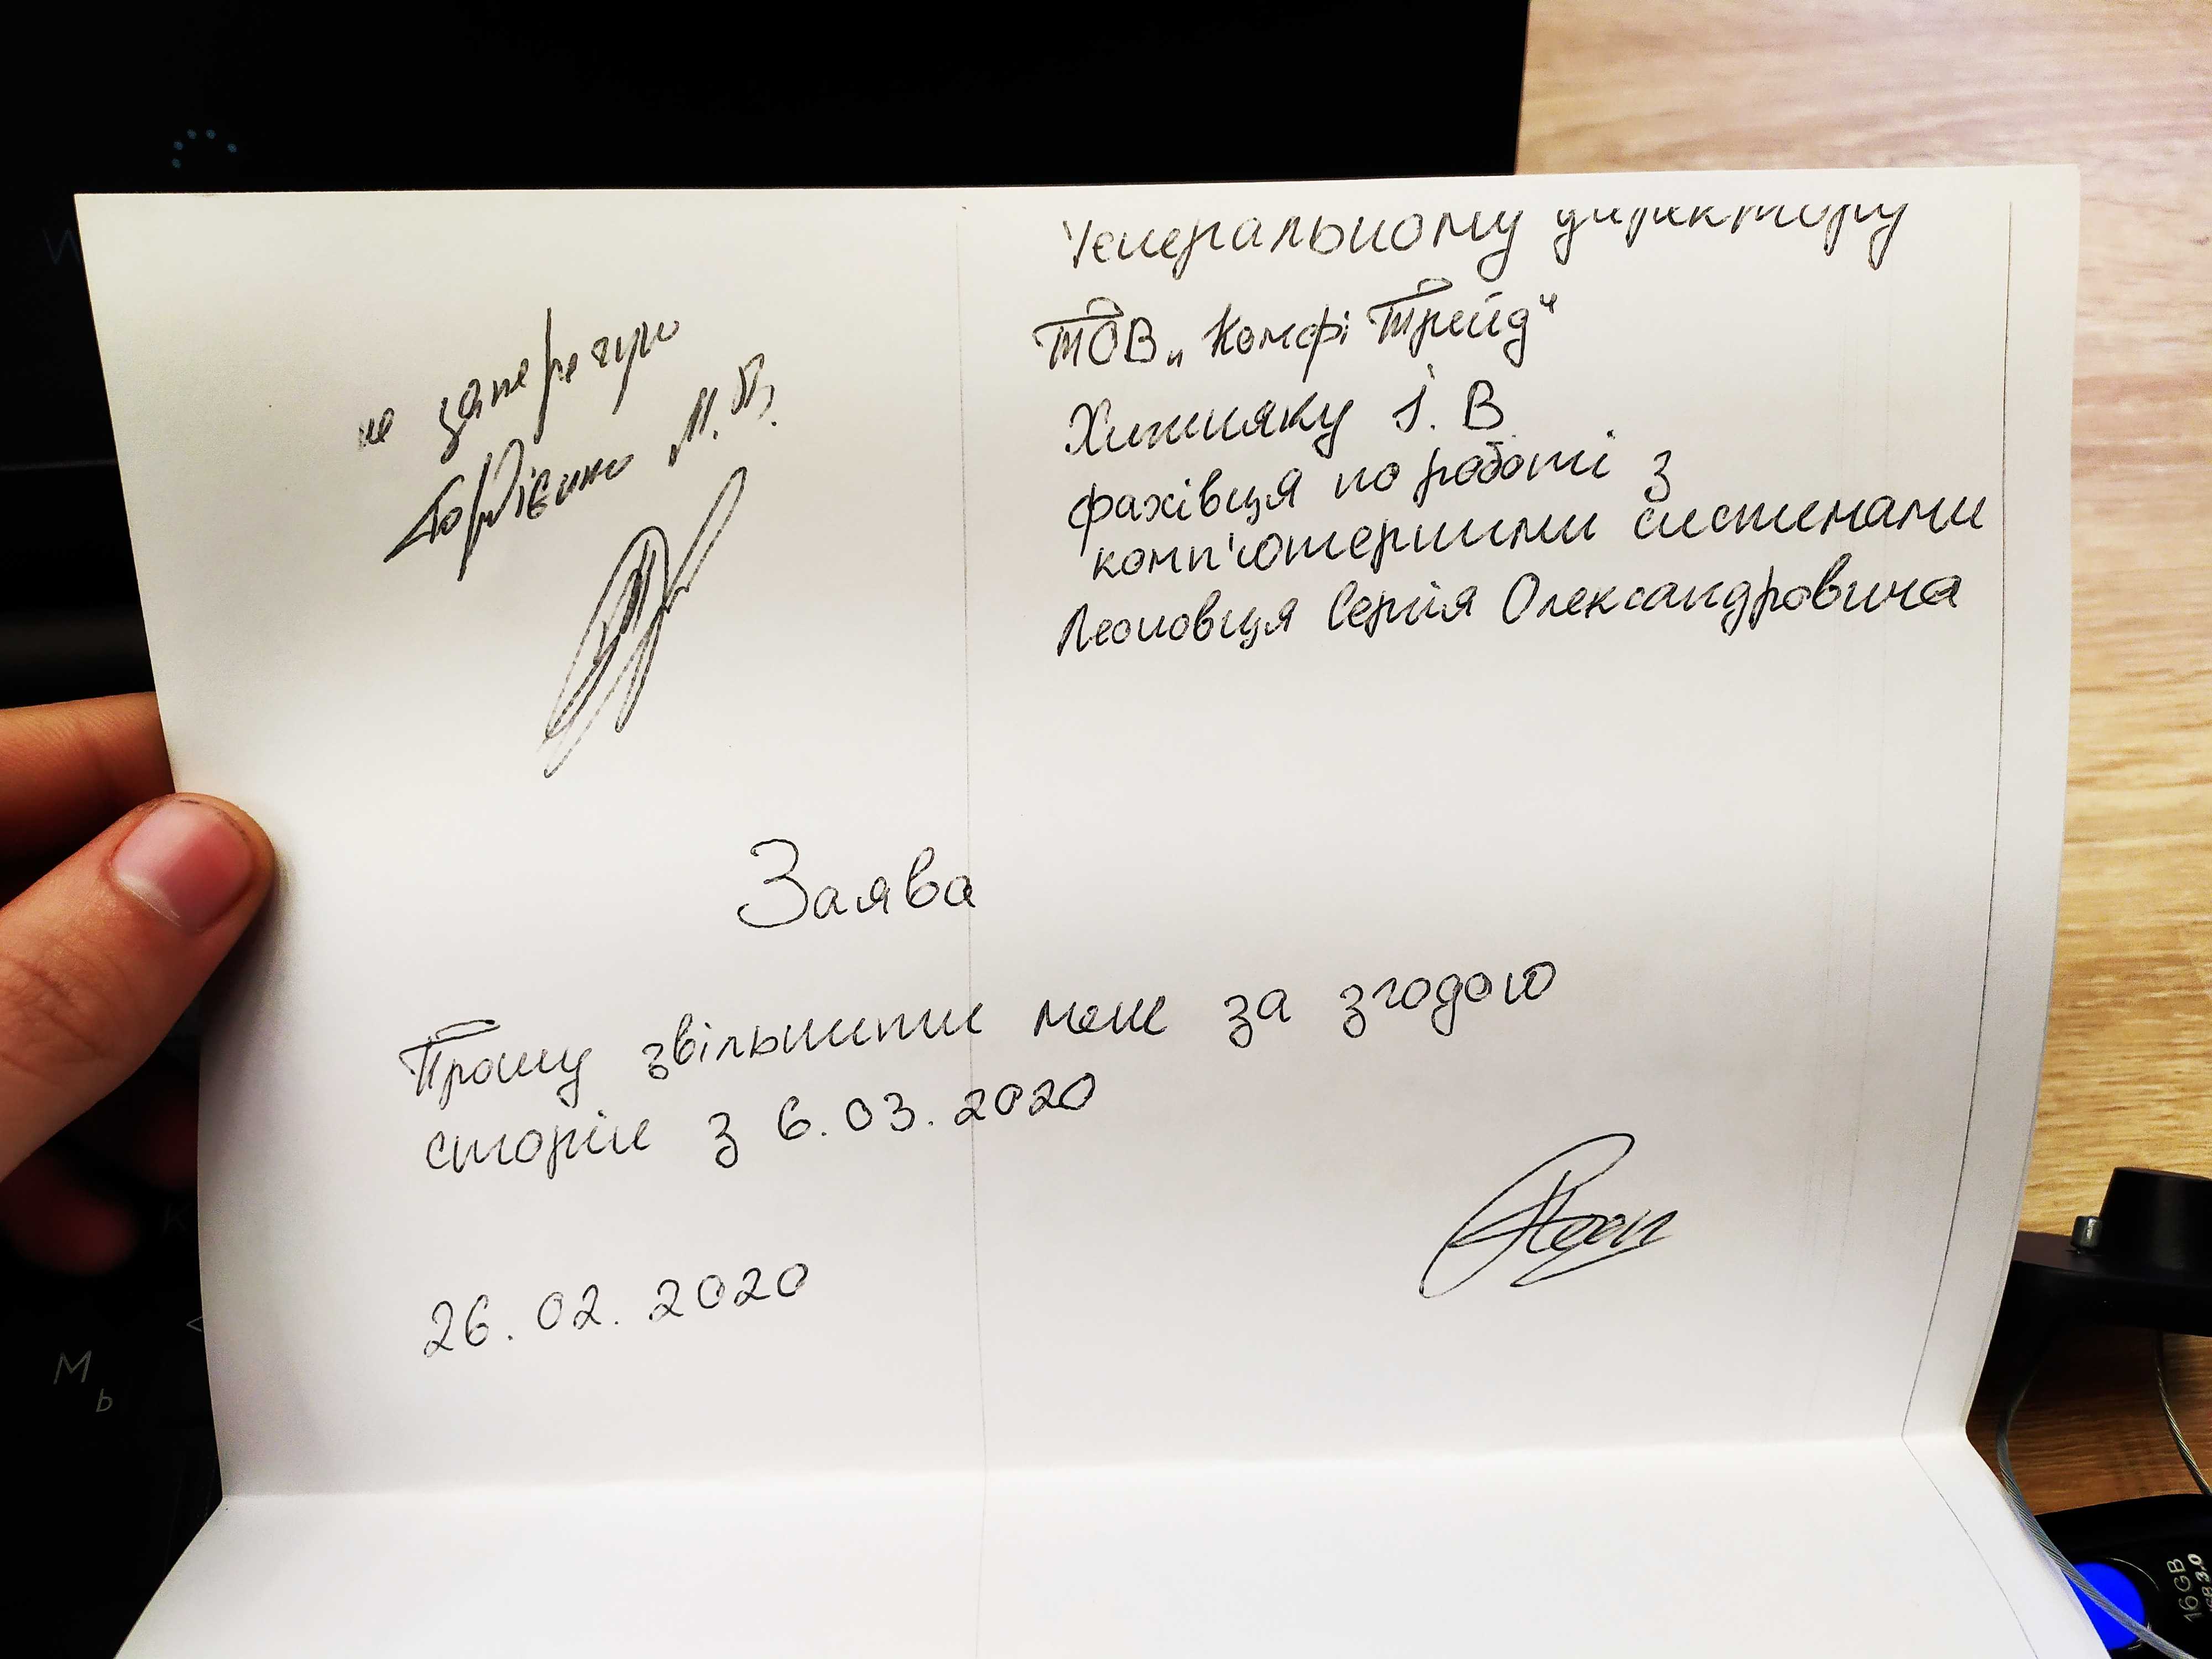 Генеральному директору
ТОВ „Комфі Трейд“
Хижняку І. В.
фахівця по роботі з
комп'ютерними системами
Леоновця Сергія Олександровича
не заперечую
М. В.
Заява
Прошу звільнити мене за згодою
сторін з 6.03.2020
26.02.2020
16GB